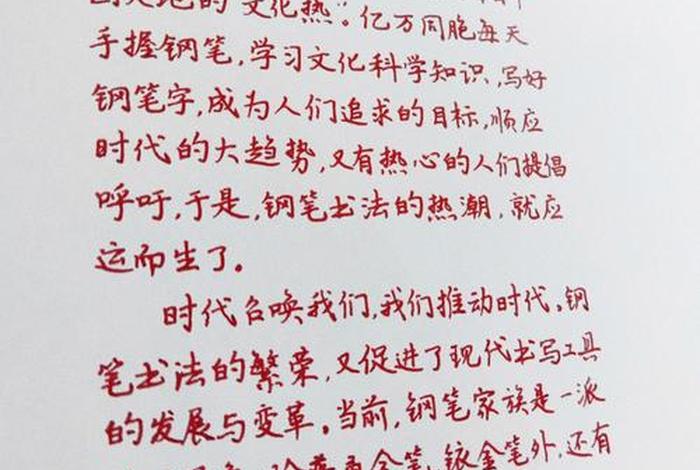 的"文化热"。亿万同胞每天
手握钢笔,学习文化科学知识,写好
钢笔字,成为人们追求的目标,顺应
时代的大趋势,又有热心的人们提倡
呼吁,于是,钢笔书法的热潮,就应
运而生了。
时代召唤我们,我们推动时代。钢
笔书法的繁荣,又促进了现代书写工具
的发展与变革。当前,钢笔家族是一派
金笔,铱金笔外,还有